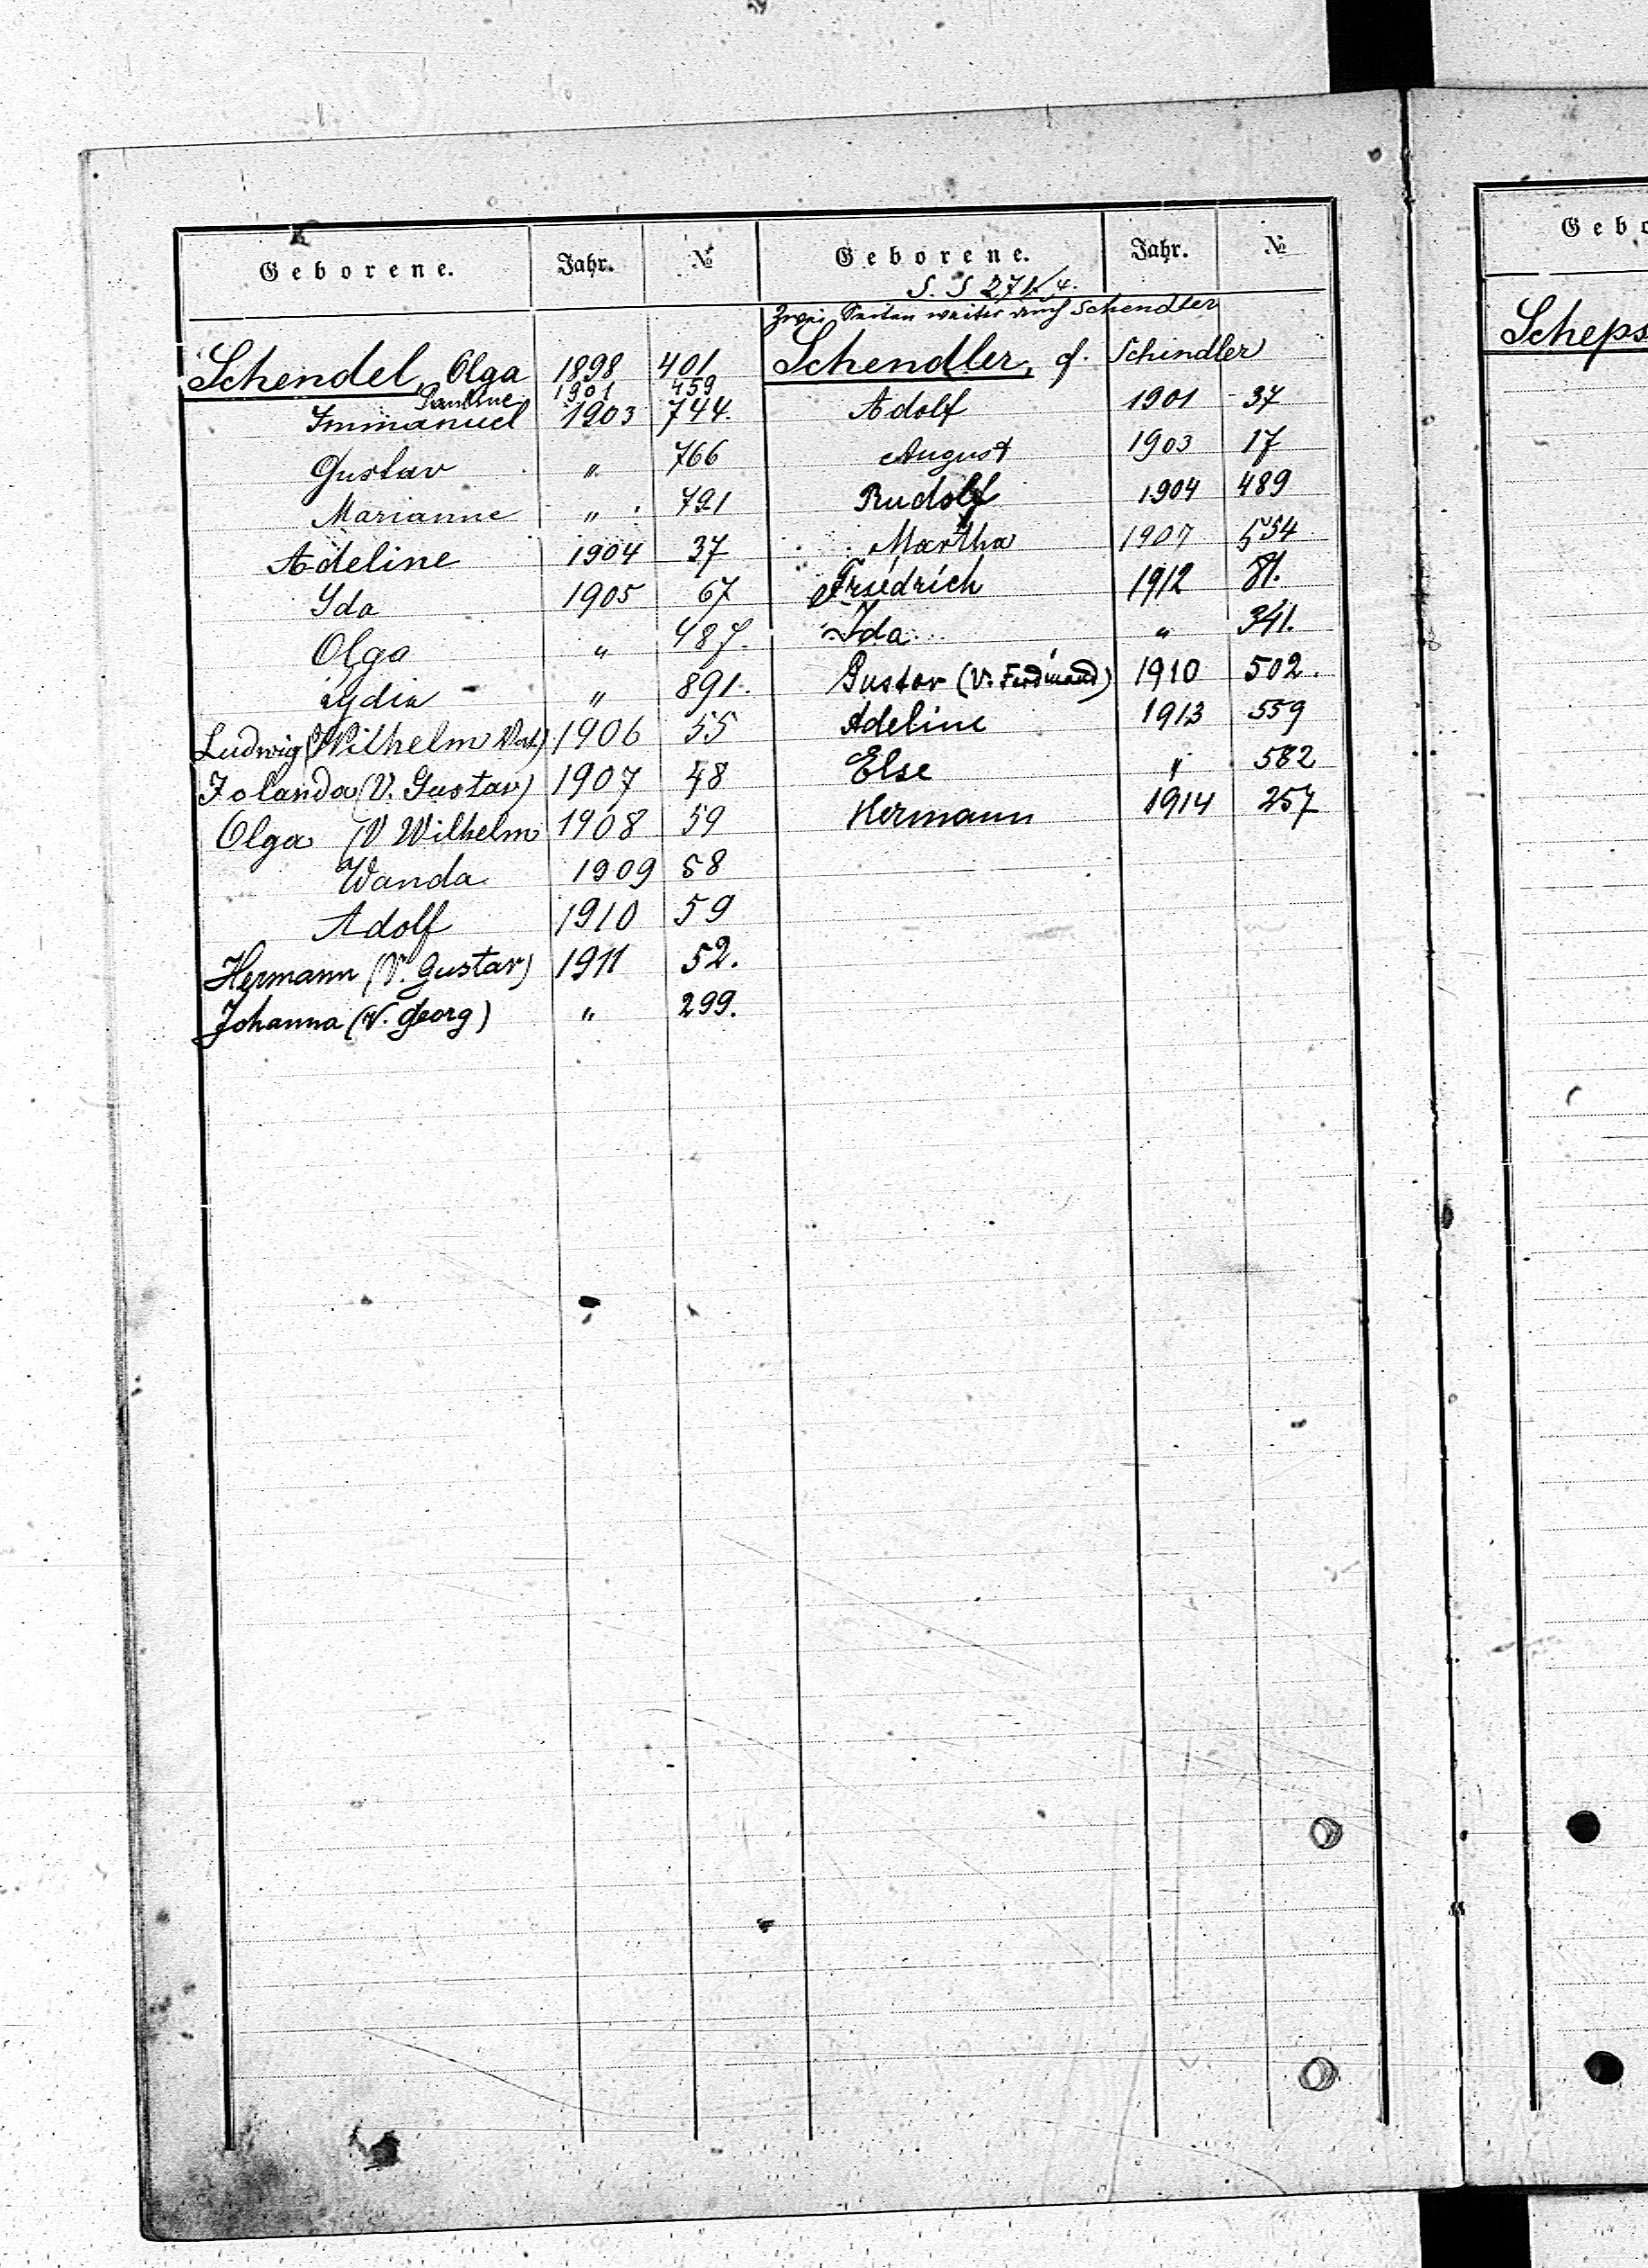 Geborene. Jahr. №
Schendel Olga 1898 401
Pauline 1901 459
Immanuel 1903 744.
Gustav " 766
Marianne " 791
Adeline 1904 37
Ida 1905 67
Olga " 487.
Lydia " 891.
Ludwig (Wilhelm Vat) 1906 55
Jolanda (V. Gustav) 1907 48
Olga (V Wilhelm 1908 59
Wanda 1909 58
Adolf 1910 59
Hermann (V. Gustav) 1911 52.
Johanna (V. Georg) " 299.
Geborene. Jahr. №
S. S 271/4.
Zwei Seiten weiter auch Schendler
Schendler, cf. Schindler
Adolf 1901 37
August 1903 17
Rudolf 1904 489
Martha 1907 554
Friedrich 1912 81.
Ida " 341.
Gustav (V. Ferdinand) 1910 502.
Adeline 1913 559
Else " 582
Hermann 1914 257
Gebo
Scheps